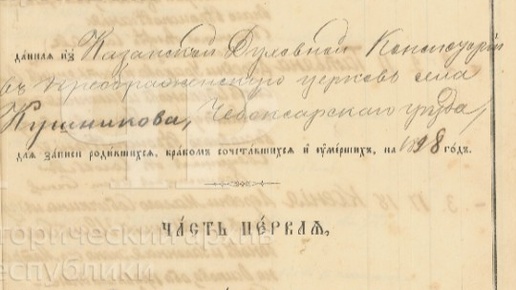 данная изъ Казанской Духовной Консисторіи
въ Преображенскую церковь села
Кушникова, Чебоксарскаго уѣзда,
для записи родившихся, бракомъ сочетавшихся и умершихъ, на 1898 годъ.
ЧАСТЬ ПЕРВАЯ,
торический архив
еспублики